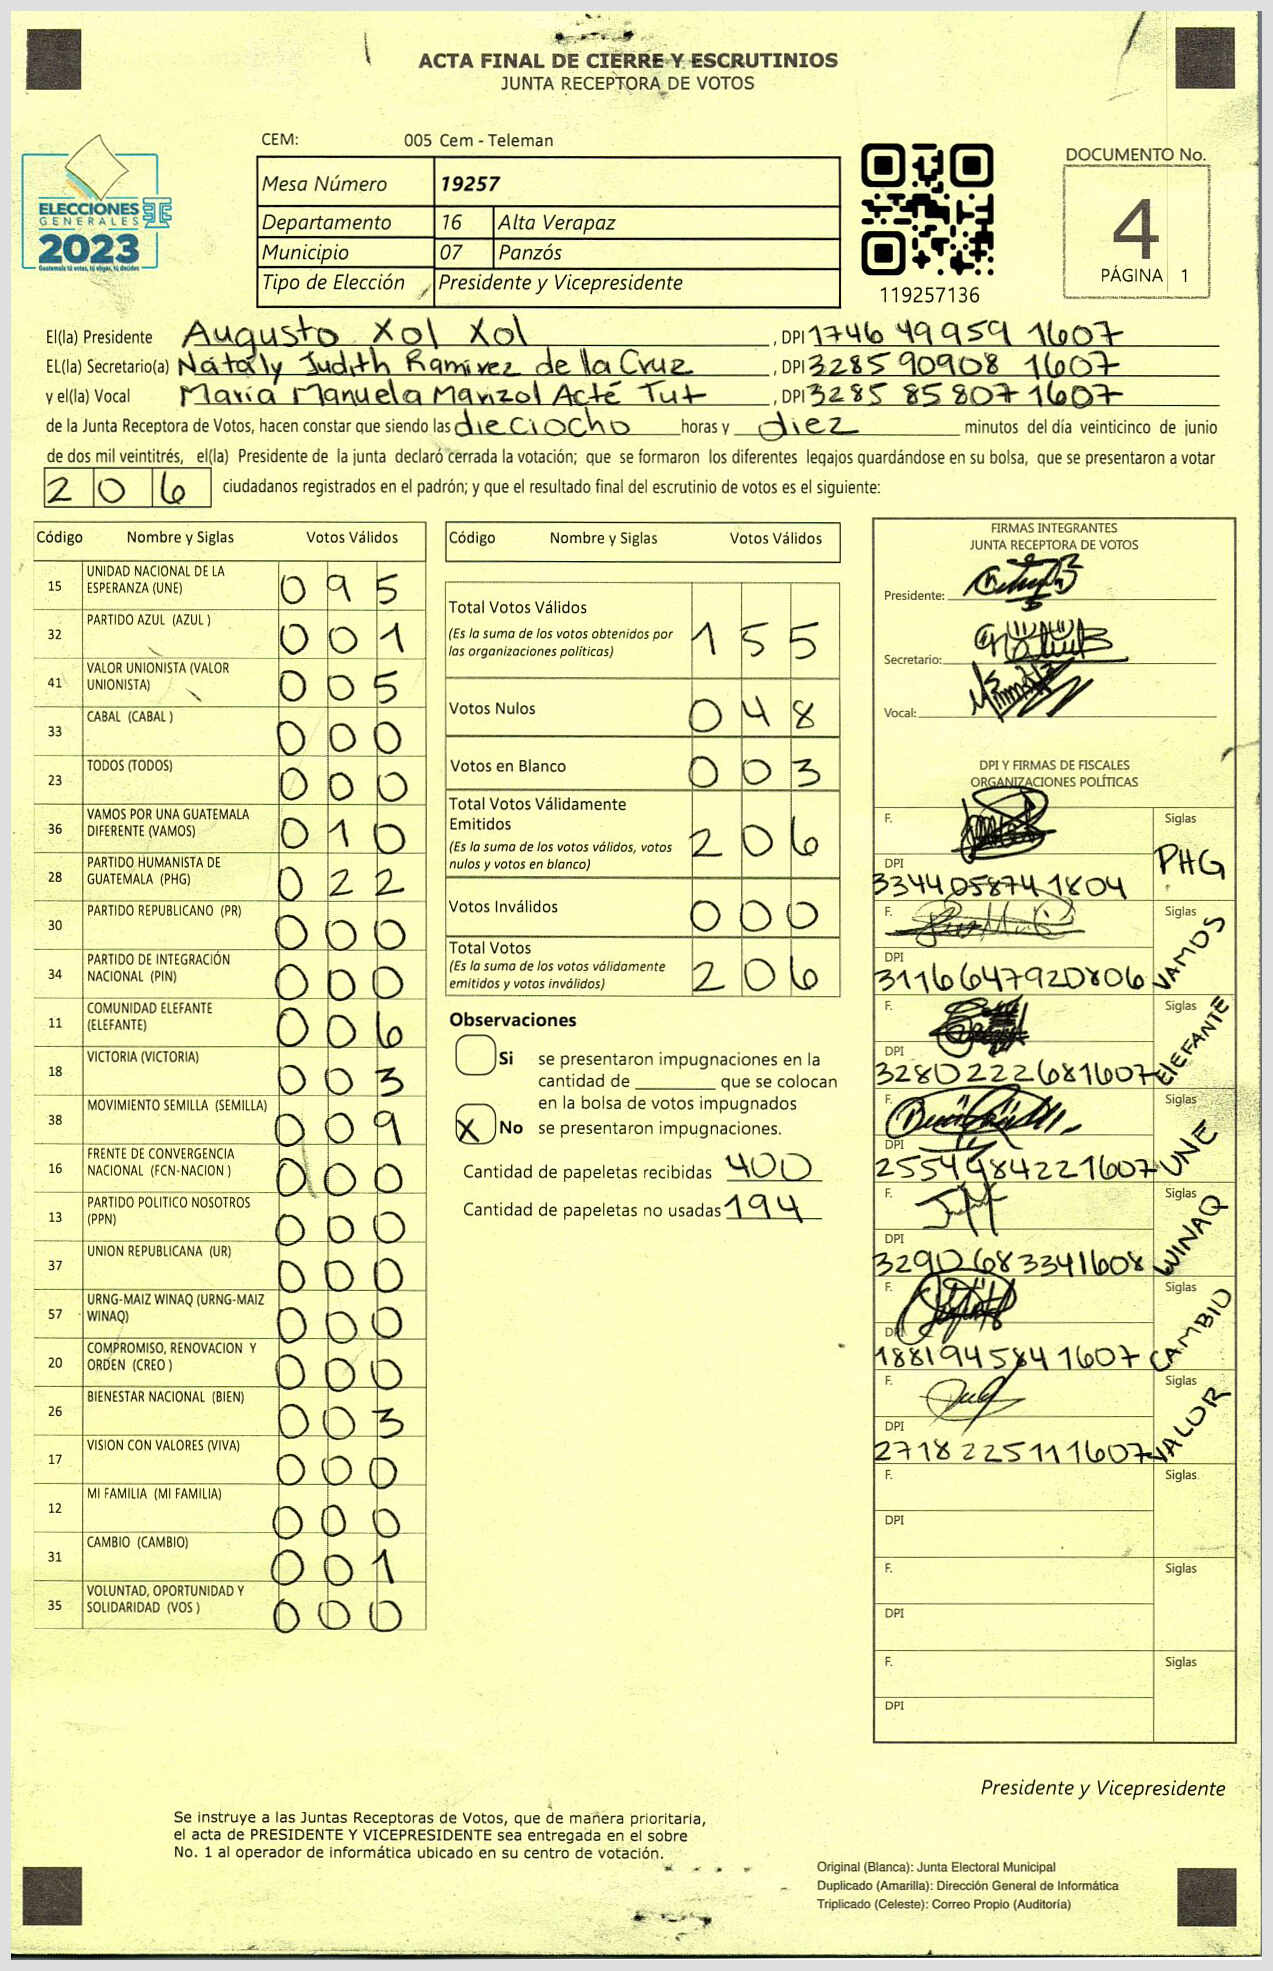 ACTA FINAL DE CIERRE Y ESCRUTINIOS
JUNTA RECEPTORA DE VOTOS
CEM: 005 Cem - Teleman
ELECCIONES
GENERALES
2023
Guatemala tú votas, tú eliges, tú decides
Mesa Número 19257
Departamento 16 Alta Verapaz
Municipio 07 Panzós
Tipo de Elección Presidente y Vicepresidente
119257136
DOCUMENTO No.
4
PÁGINA 1
El(la) Presidente Augusto Xol Xol, DPI 1746 49959 1607
EL(la) Secretario(a) Nataly Judith Ramirez de la Cruz, DPI 3285 90908 1607
y el(la) Vocal Maria Manuela Marizol Acté Tut, DPI 3285 85807 1607
de la Junta Receptora de Votos, hacen constar que siendo las dieciocho horas y diez minutos del día veinticinco de junio
de dos mil veintitrés, el(la) Presidente de la junta declaró cerrada la votación; que se formaron los diferentes legajos guardándose en su bolsa, que se presentaron a votar
206 ciudadanos registrados en el padrón; y que el resultado final del escrutinio de votos es el siguiente:
Código Nombre y Siglas Votos Válidos
15 UNIDAD NACIONAL DE LA
ESPERANZA (UNE) 095
32 PARTIDO AZUL (AZUL ) 001
41 VALOR UNIONISTA (VALOR
UNIONISTA) 005
33 CABAL (CABAL ) 000
23 TODOS (TODOS) 000
36 VAMOS POR UNA GUATEMALA
DIFERENTE (VAMOS) 010
28 PARTIDO HUMANISTA DE
GUATEMALA (PHG) 022
30 PARTIDO REPUBLICANO (PR) 000
34 PARTIDO DE INTEGRACIÓN
NACIONAL (PIN) 000
11 COMUNIDAD ELEFANTE
(ELEFANTE) 006
18 VICTORIA (VICTORIA) 003
38 MOVIMIENTO SEMILLA (SEMILLA) 009
16 FRENTE DE CONVERGENCIA
NACIONAL (FCN-NACION ) 000
13 PARTIDO POLITICO NOSOTROS
(PPN) 000
37 UNION REPUBLICANA (UR) 000
57 URNG-MAIZ WINAQ (URNG-MAIZ
WINAQ) 000
20 COMPROMISO, RENOVACION Y
ORDEN (CREO ) 000
26 BIENESTAR NACIONAL (BIEN) 003
17 VISION CON VALORES (VIVA) 000
12 MI FAMILIA (MI FAMILIA) 000
31 CAMBIO (CAMBIO) 001
35 VOLUNTAD, OPORTUNIDAD Y
SOLIDARIDAD (VOS ) 000
Código Nombre y Siglas Votos Válidos
Total Votos Válidos
(Es la suma de los votos obtenidos por
las organizaciones políticas) 155
Votos Nulos 048
Votos en Blanco 003
Total Votos Válidamente
Emitidos
(Es la suma de los votos válidos, votos
nulos y votos en blanco) 206
Votos Inválidos 000
Total Votos
(Es la suma de los votos válidamente
emitidos y votos inválidos) 206
Observaciones
Si se presentaron impugnaciones en la
cantidad de ________ que se colocan
en la bolsa de votos impugnados
X No se presentaron impugnaciones.
Cantidad de papeletas recibidas 400
Cantidad de papeletas no usadas 194
FIRMAS INTEGRANTES
JUNTA RECEPTORA DE VOTOS
Presidente:
Secretario:
Vocal:
DPI Y FIRMAS DE FISCALES
ORGANIZACIONES POLÍTICAS
F. Siglas PHG
DPI
334405874 1804
F. Siglas VAMOS
DPI
3116647920806
F. Siglas ElEFANTE
DPI
3280222681607
F. Siglas UNE
DPI
2554984221607
F. Siglas WINAQ
DPI
3290683341608
F. Siglas CAMBIO
DPI
1881945841607
F. Siglas VALOR
DPI
2718225111607
F. Siglas
DPI
F. Siglas
DPI
F. Siglas
DPI
Presidente y Vicepresidente
Se instruye a las Juntas Receptoras de Votos, que de manera prioritaria,
el acta de PRESIDENTE Y VICEPRESIDENTE sea entregada en el sobre
No. 1 al operador de informática ubicado en su centro de votación.
Original (Blanca): Junta Electoral Municipal
Duplicado (Amarilla): Dirección General de Informática
Triplicado (Celeste): Correo Propio (Auditoría)